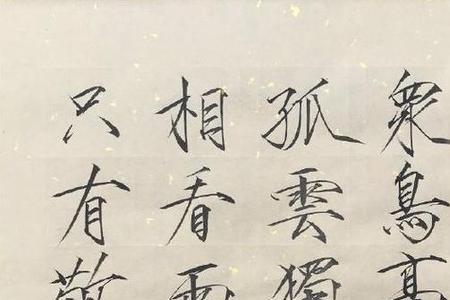 衆鳥高
孤雲獨
相看兩
只有敬